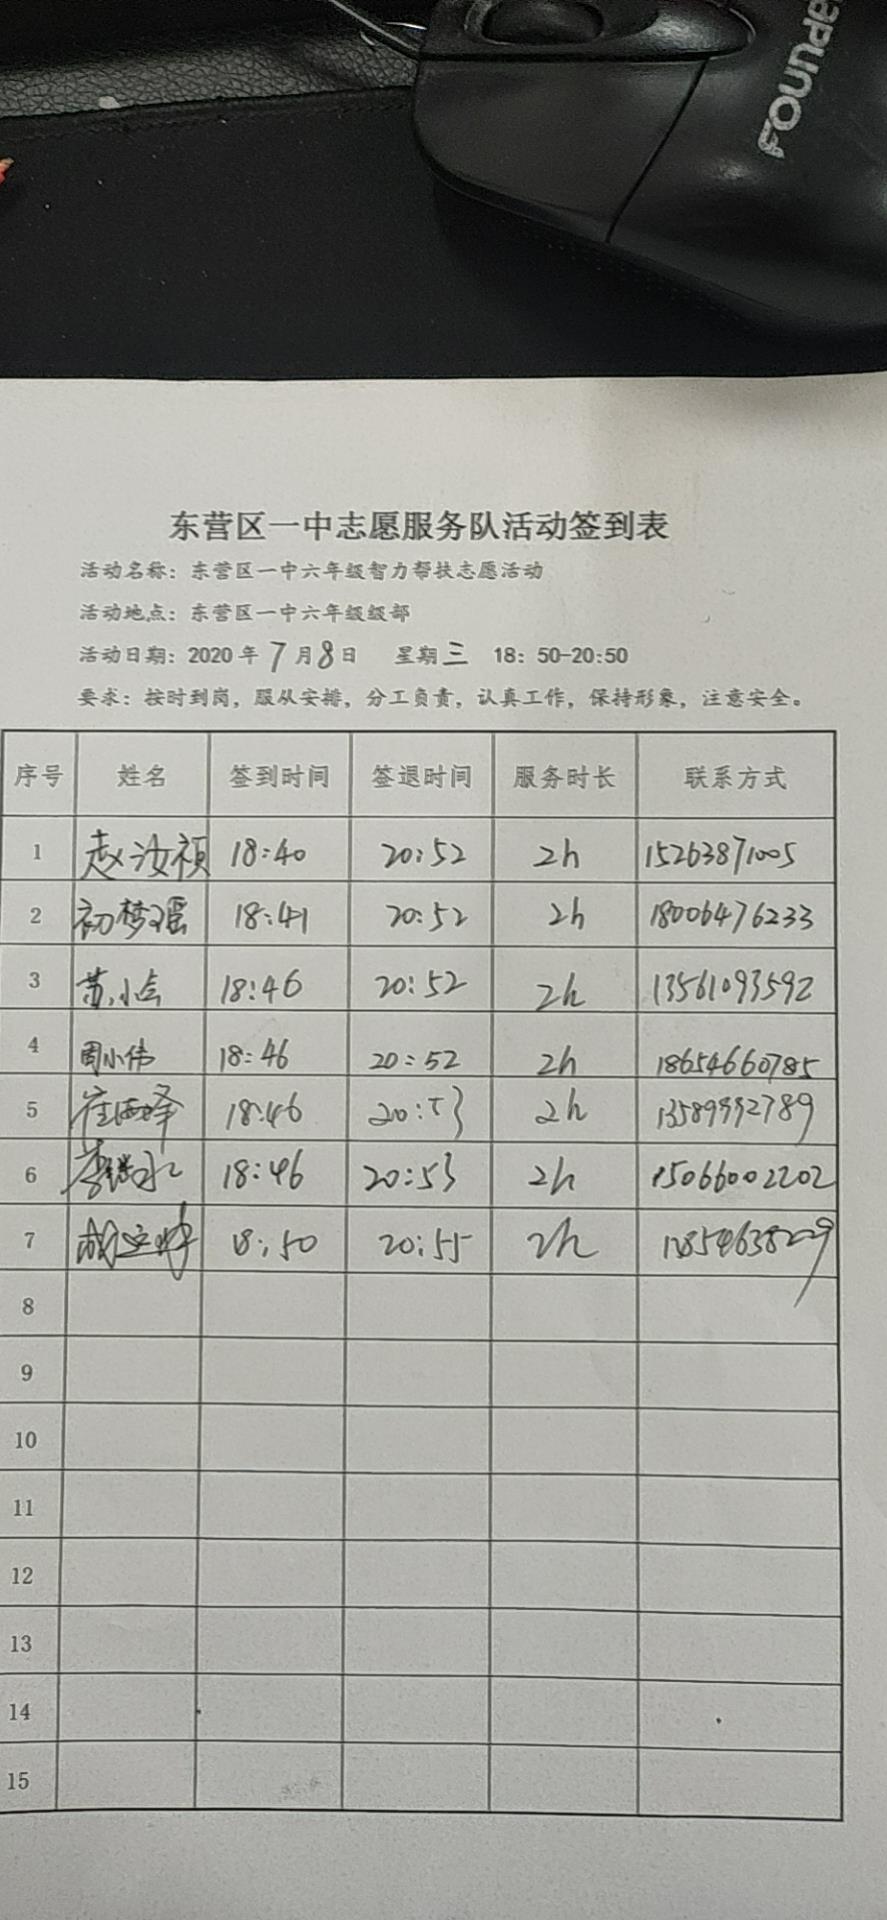 FOUNDE
东营区一中志愿服务队活动签到表
活动名称：东营区一中六年级智力帮扶志愿活动
活动地点：东营区一中六年级级部
活动日期：2020年7月8日 星期三 18：50-20:50
要求：按时到岗，服从安排，分工负责，认真工作，保持形象，注意安全。
序号 姓名 签到时间 签退时间 服务时长 联系方式
1 赵汝祯 18:40 20:52 2h 15263871005
2 初梦瑶 18:41 20:52 2h 18006476233
3 苏小会 18:46 20:52 2h 13561093592
4 周小伟 18:46 20:52 2h 18654660785
5 18:46 20:53 2h 13589992789
6 18:46 20:53 2h 15066002202
7 18:50 20:55 2h
8
9
10
11
12
13
14
15